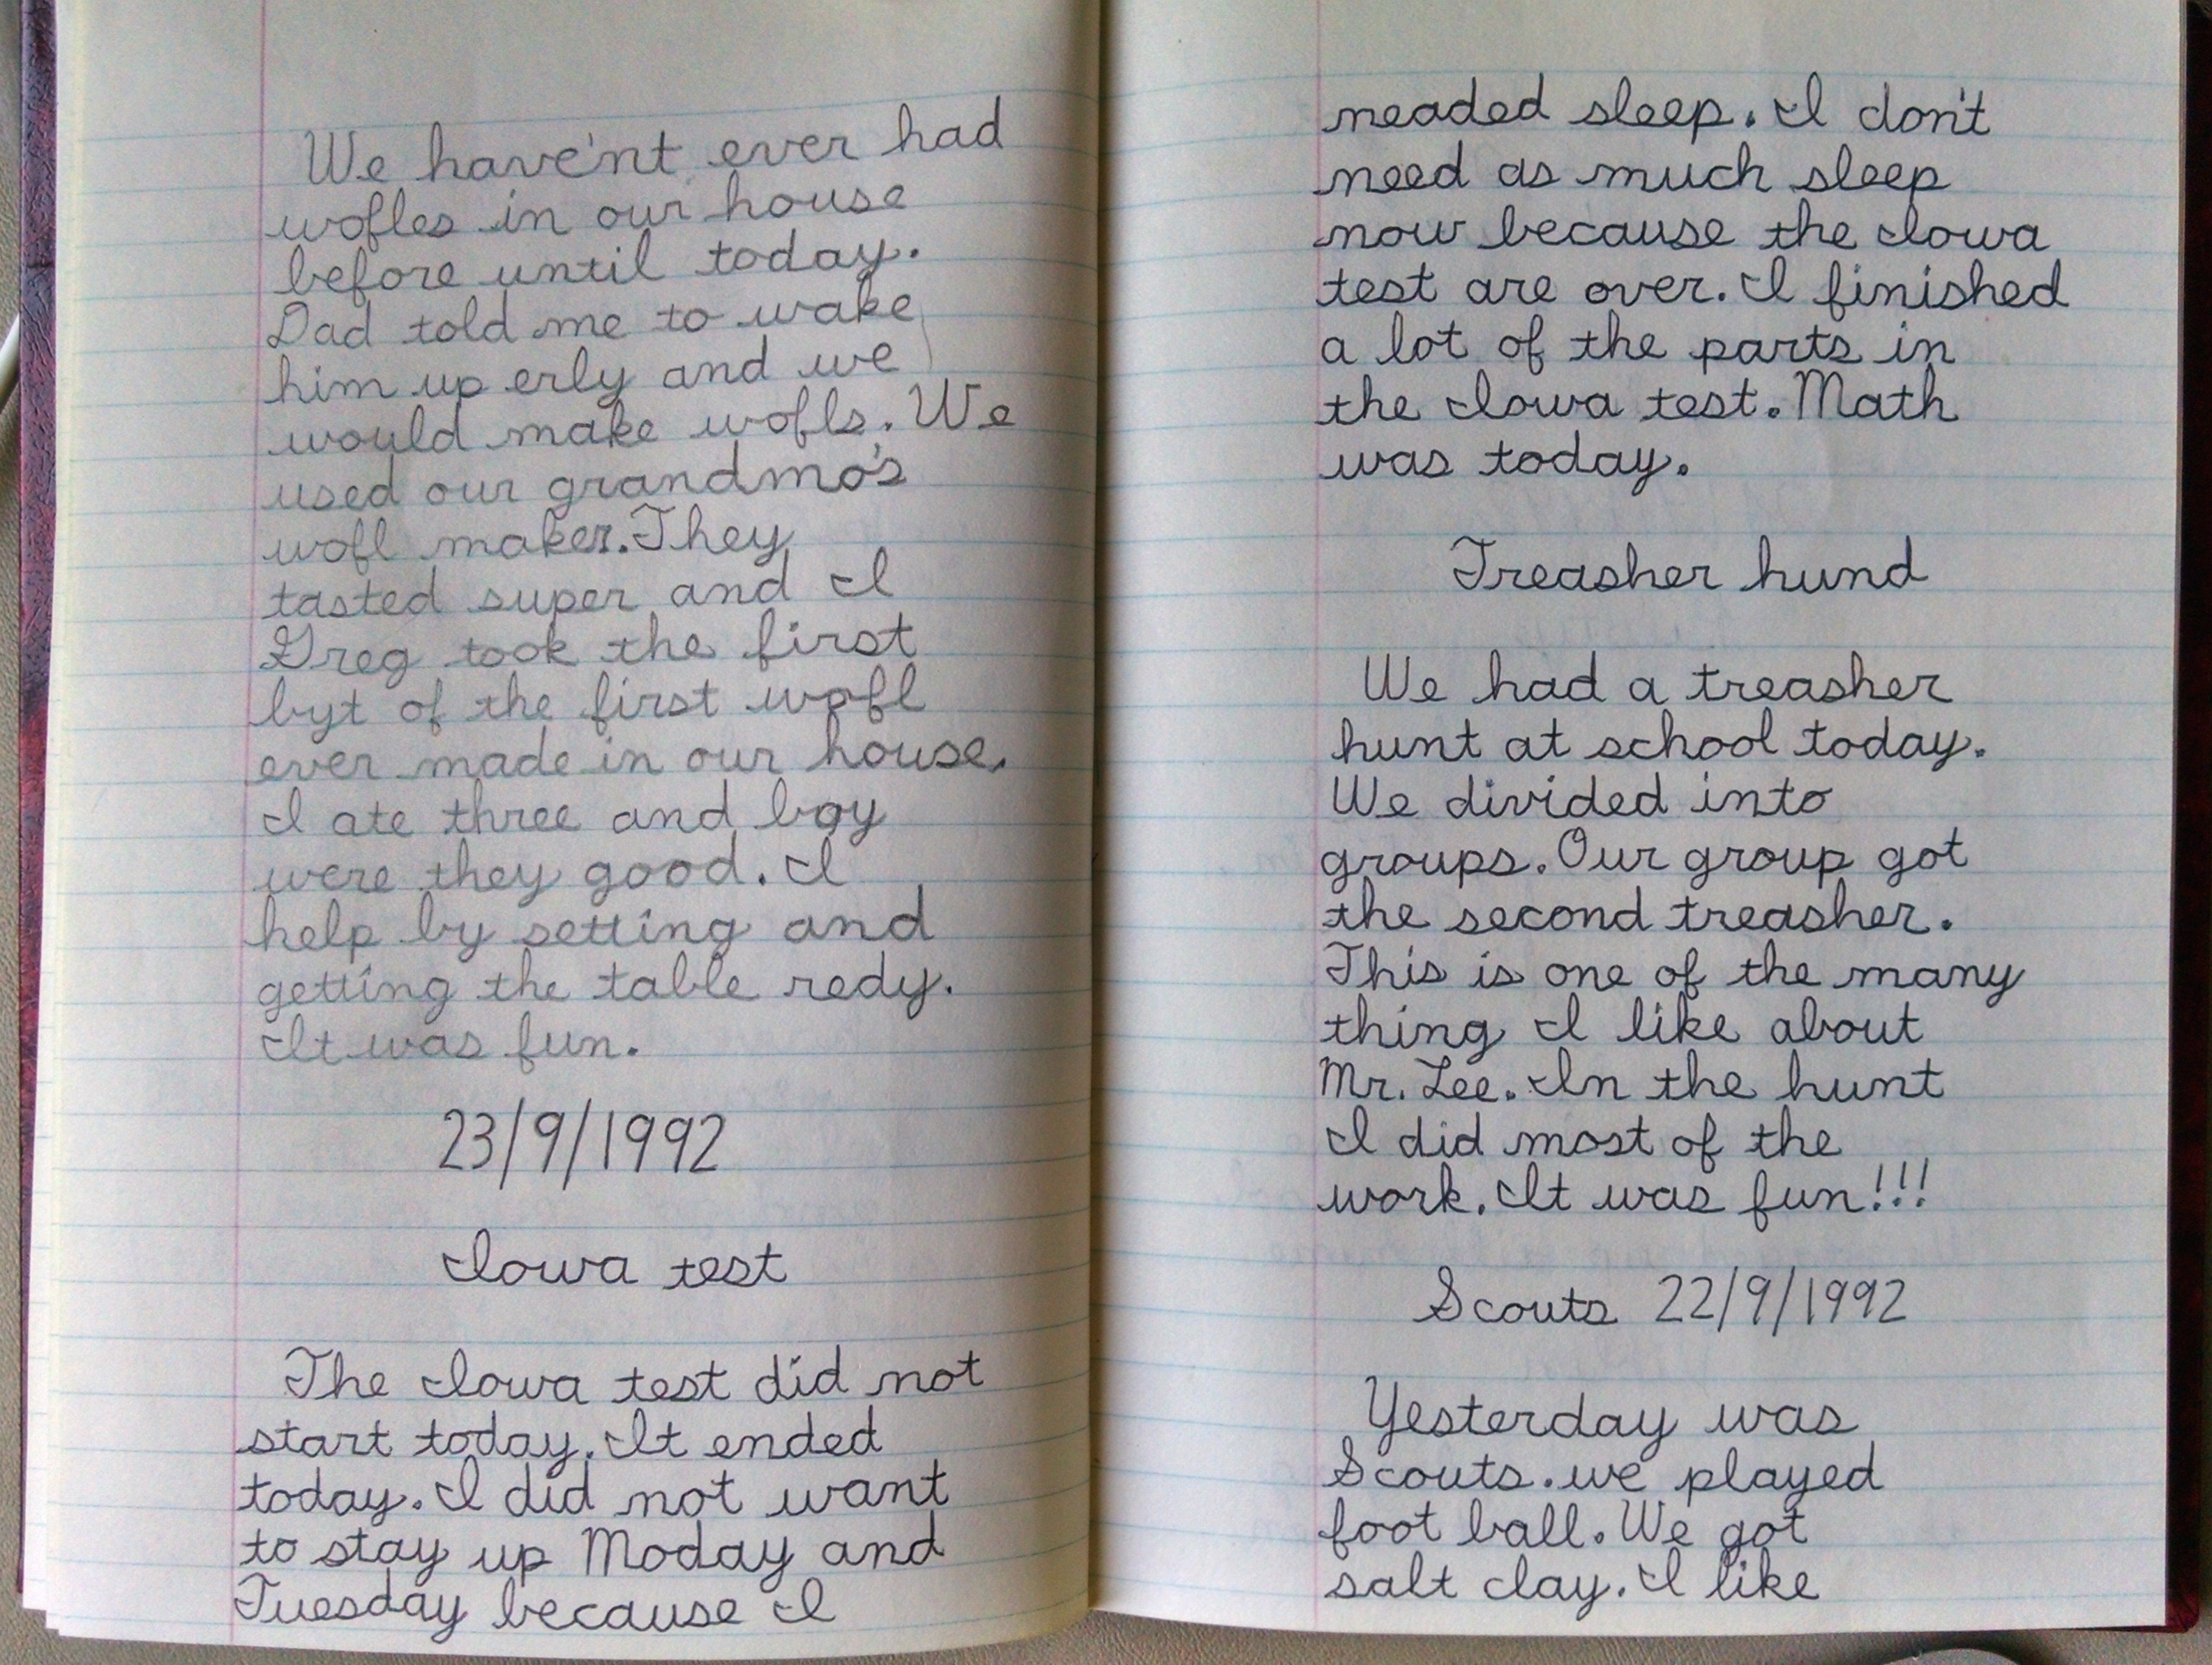 We have'nt ever had
wofles in our house
before until today.
Dad told me to wake
him up erly and we
would make wofls. We
used our grandmo's
wofl maker. They
tasted super and I
Greg took the first
byt of the first wofl
ever made in our house.
I ate three and boy
were they good. I
help by setting and
getting the table redy.
It was fun.
23/9/1992
Iowa test
The Iowa test did not
start today. It ended
today. I did not want
to stay up Moday and
Tuesday because I
neaded sleep. I don't
need as much sleep
now because the Iowa
test are over. I finished
a lot of the parts in
the Iowa test. Math
was today.
Treasher hund
We had a treasher
hunt at school today.
We divided into
groups. Our group got
the second treasher.
This is one of the many
thing I like about
Mr. Lee. In the hunt
I did most of the
work. It was fun!!!
Scouts 22/9/1992
Yesterday was
Scouts. we played
foot ball. We got
salt clay. I like